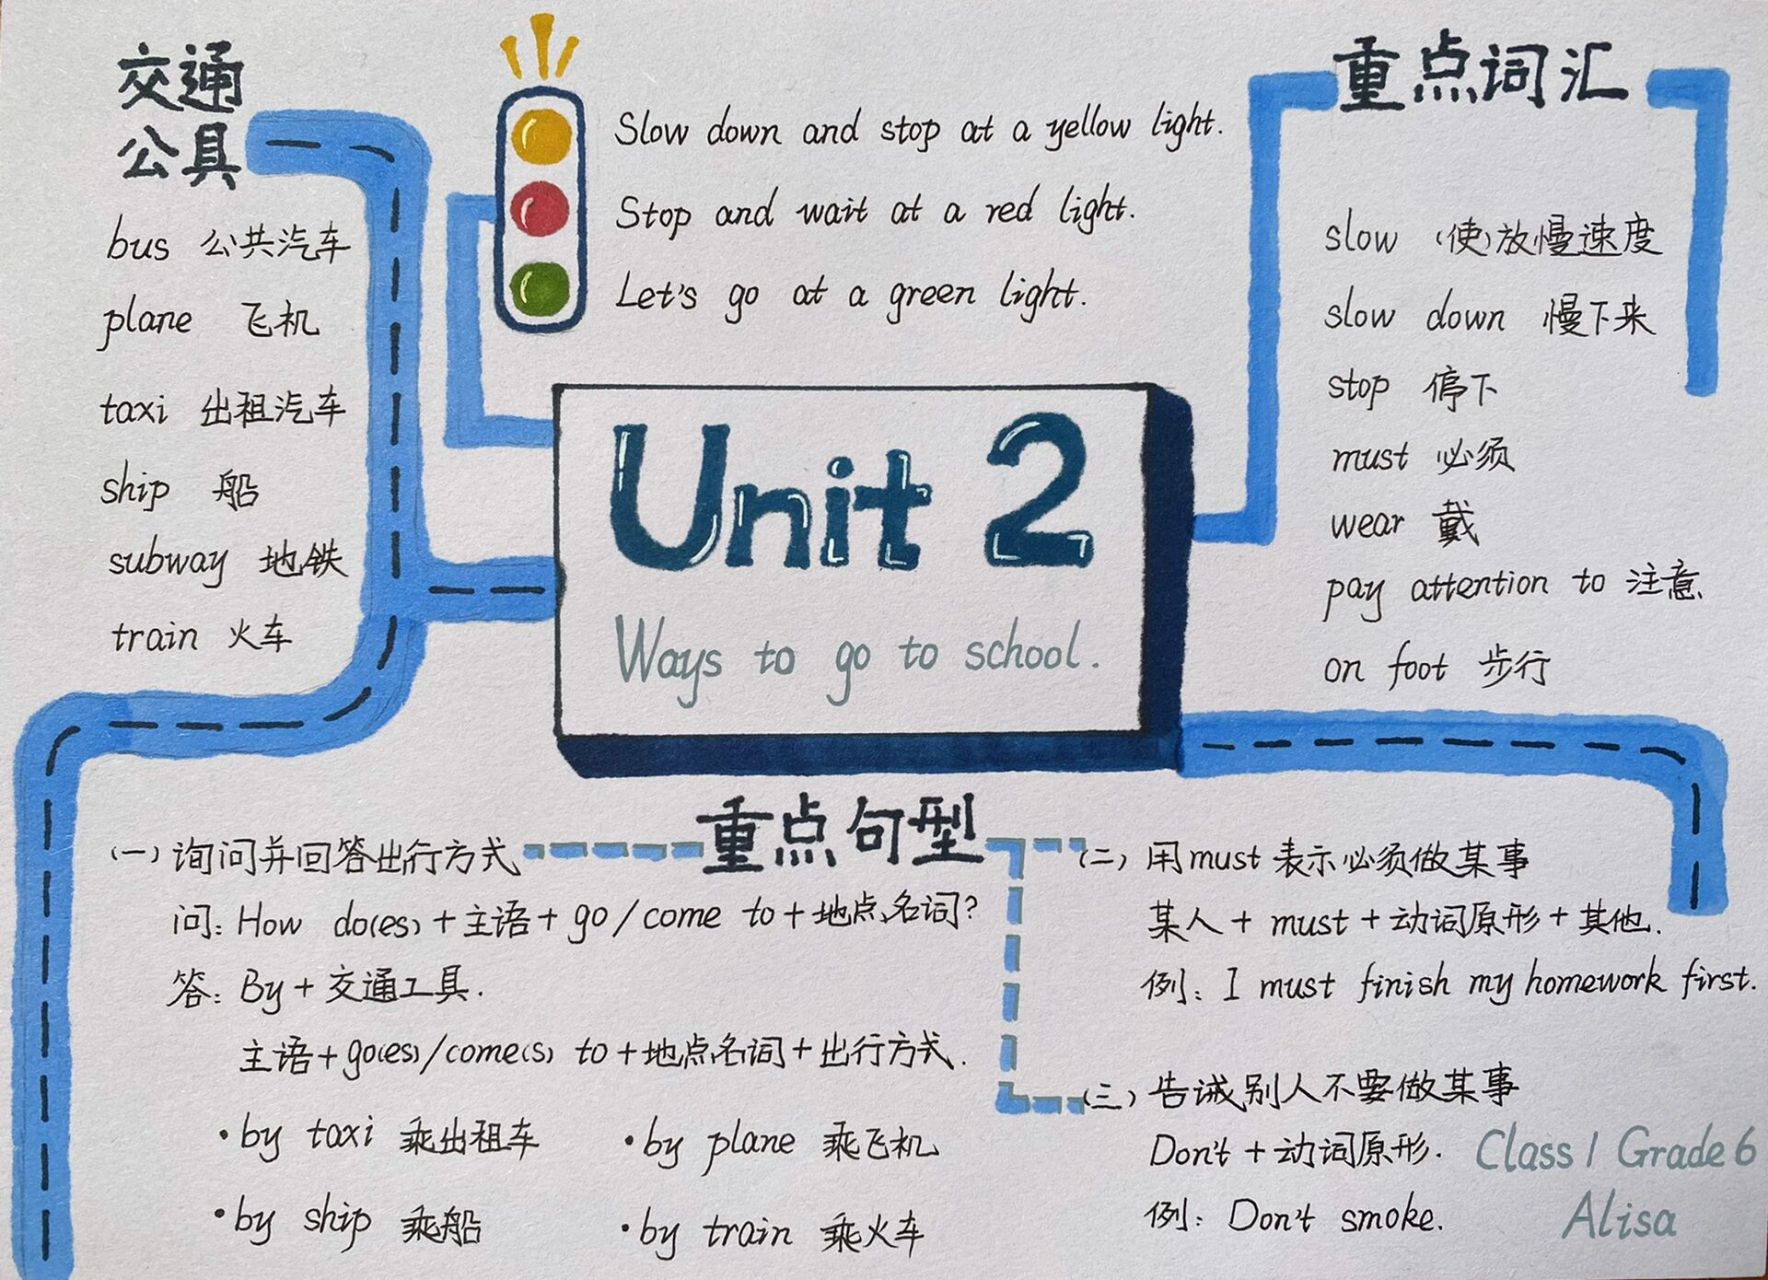 交通
公具
bus 公共汽车
plane 飞机
taxi 出租汽车
ship 船
subway 地铁
train 火车
Slow down and stop at a yellow light.
Stop and wait at a red light.
Let's go at a green light.
重点词汇
slow (使)放慢速度
slow down 慢下来
stop 停下
must 必须
wear 戴
pay attention to 注意
on foot 步行
Unit 2
Ways to go to school.
重点句型
(一) 询问并回答出行方式
问: How do(es)+主语+go/come to+地点名词?
答: By+交通工具.
主语+go(es)/come(s) to+地点名词+出行方式.
·by taxi 乘出租车
·by plane 乘飞机
·by ship 乘船
·by train 乘火车
(二) 用must表示必须做某事
某人+must+动词原形+其他.
例: I must finish my homework first.
(三) 告诫别人不要做某事
Don't+动词原形.
例: Don't smoke.
Class 1 Grade 6
Alisa